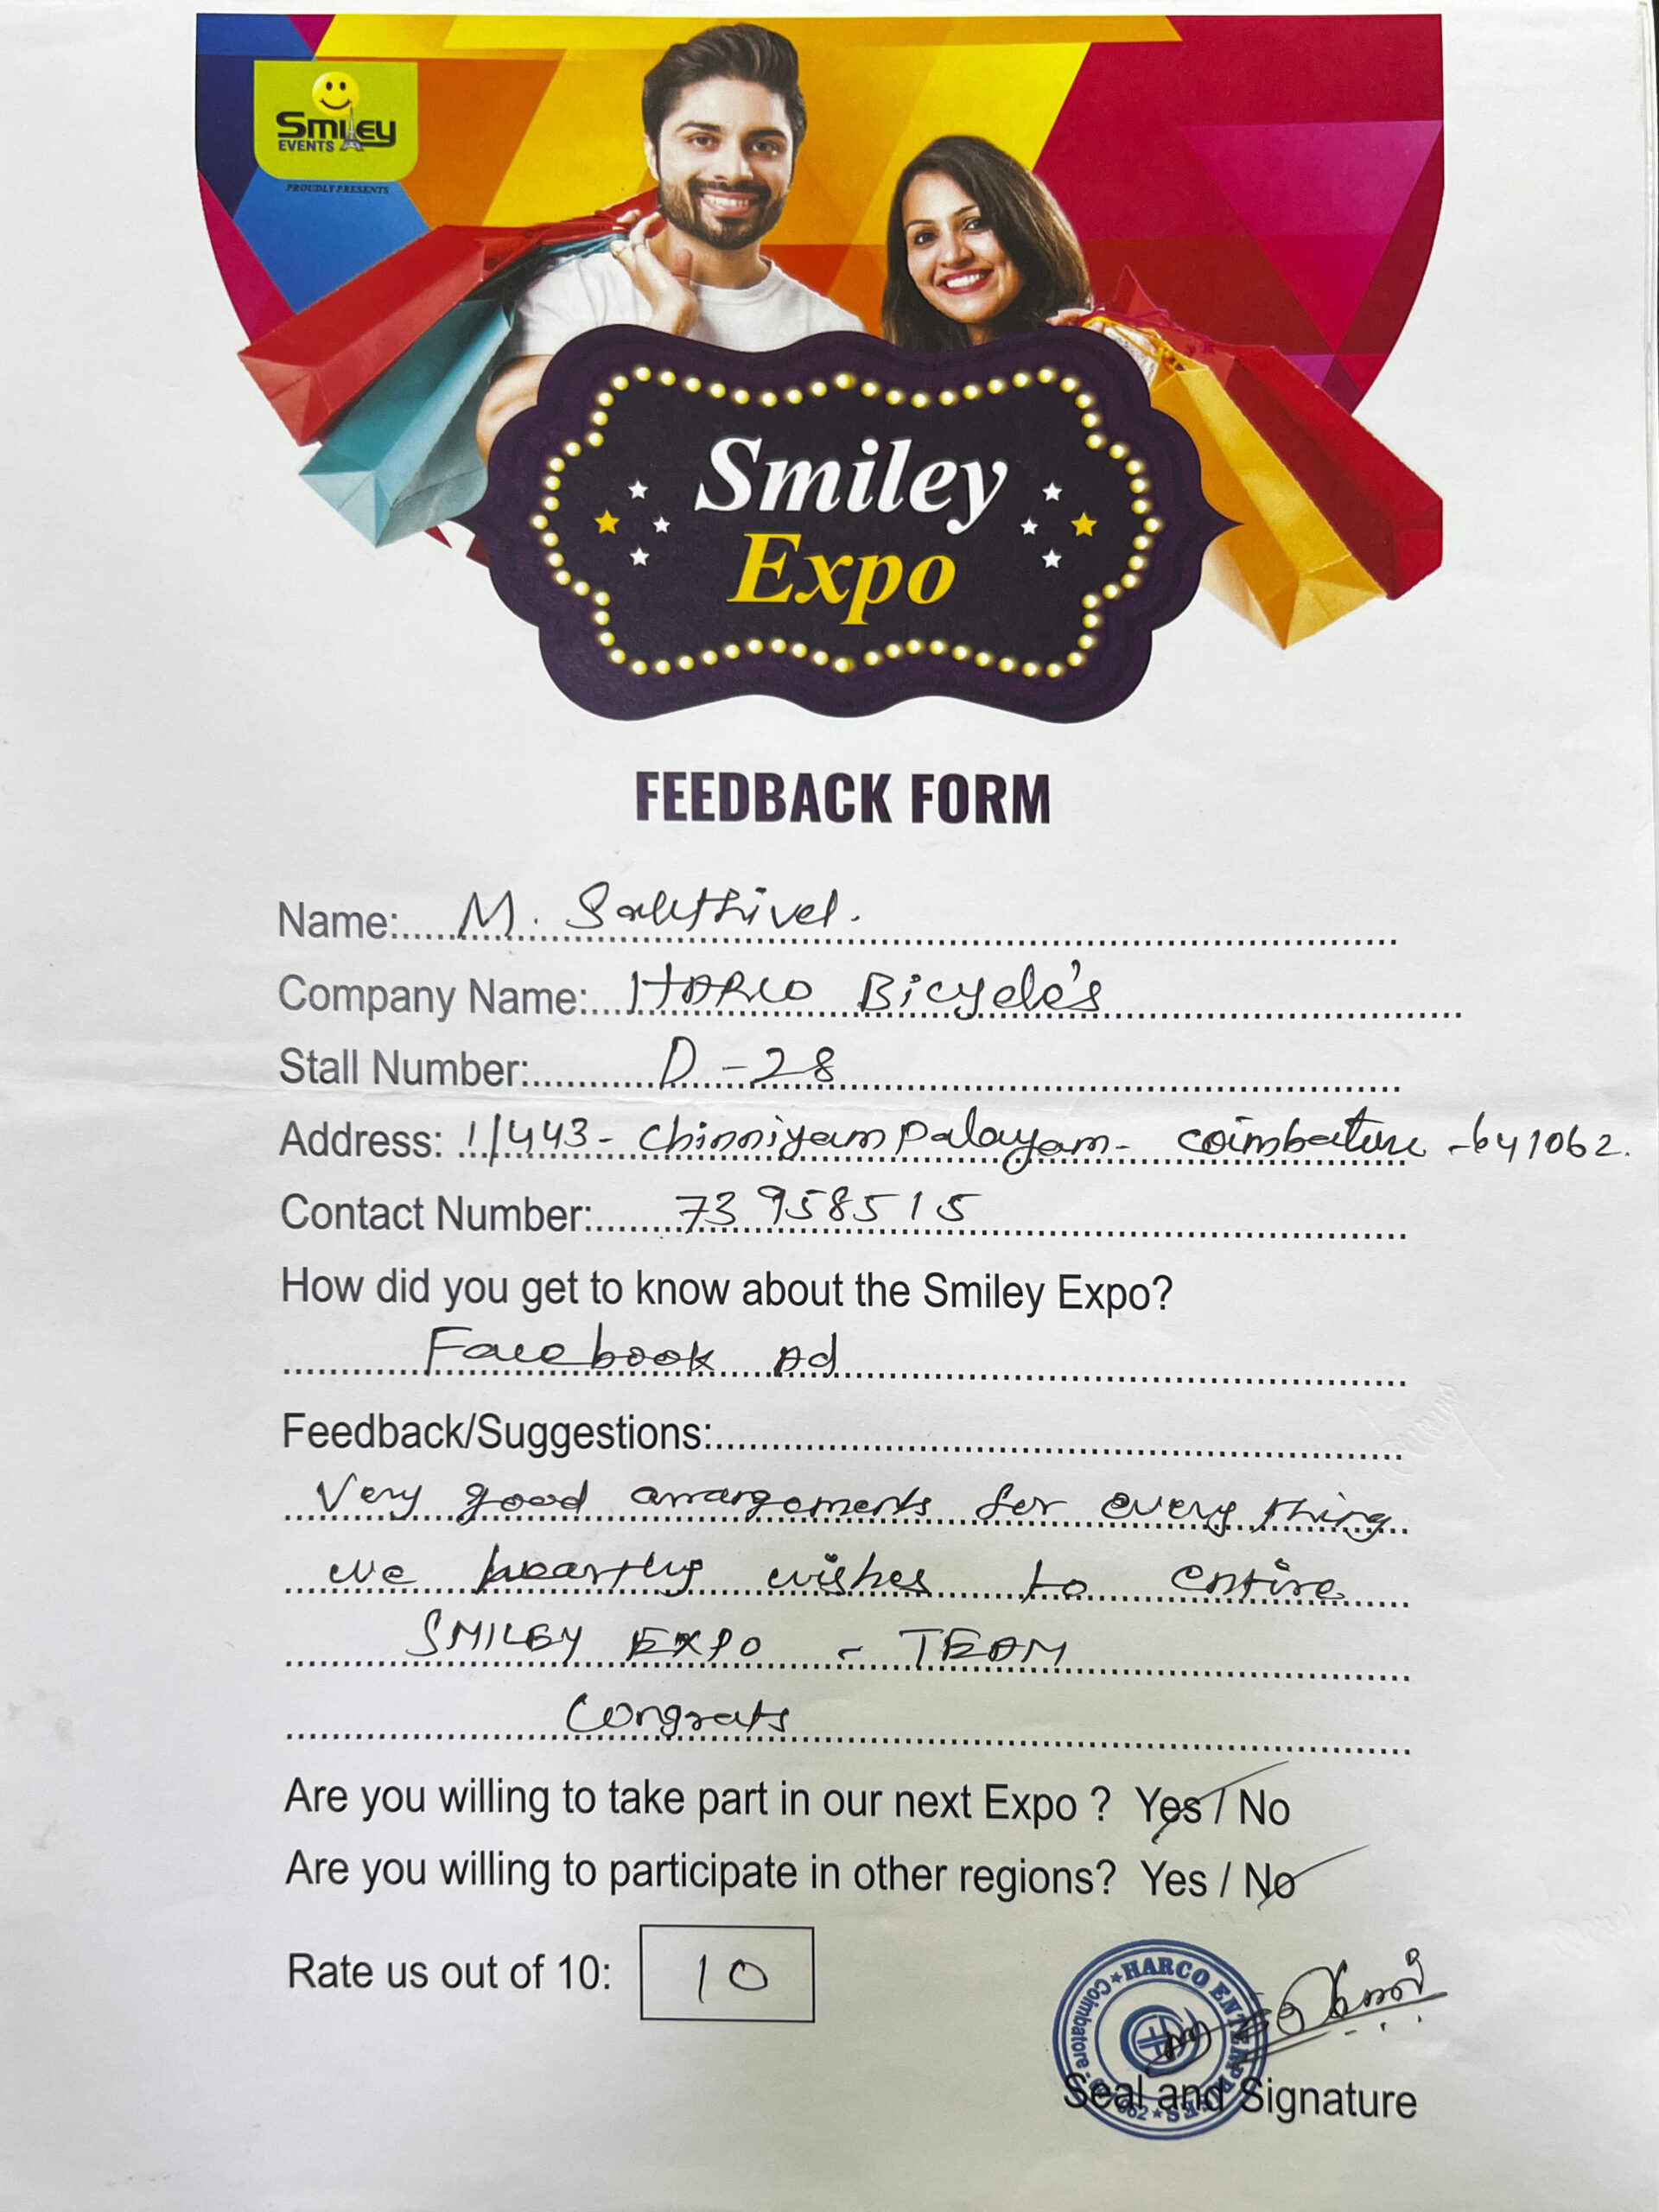 Smiley
EVENTS
PROUDLY PRESENTS
Smiley
Expo
FEEDBACK FORM
Name:.....M. Sakthivel.
Company Name:...HARCO Bicycle's
Stall Number:.............D-28
Address: 1/443- Chinniyampalayam- coimbature -641062.
Contact Number:........73958515
How did you get to know about the Smiley Expo?
Facebook Ad
Feedback/Suggestions:
Very good arrangements for every thing
we heartly wishes to entire
SMILEY EXPO - TEAM
Congrats
Are you willing to take part in our next Expo ? Yes / No
Are you willing to participate in other regions? Yes / No
Rate us out of 10: 10
HARCO ENTERPRISES
Coimbatore
Seal and Signature